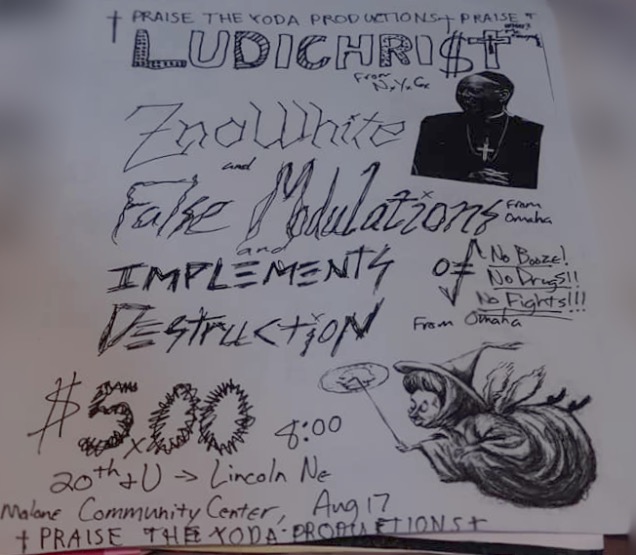 † PRAISE THE YODA PRODUCTIONS † PRAISE †
LUDICHRI$T
From
N.Y.C.
ZnoWhite
and
False Modulations
From
Omaha
and
IMPLEMENTS of
DESTRUCTION
From Omaha
No Booze!
No Drugs!!
No Fights!!!
$5.00
8:00
20th + U → Lincoln Ne
Malone Community Center, Aug 17
† PRAISE THE YODA PRODUCTIONS †